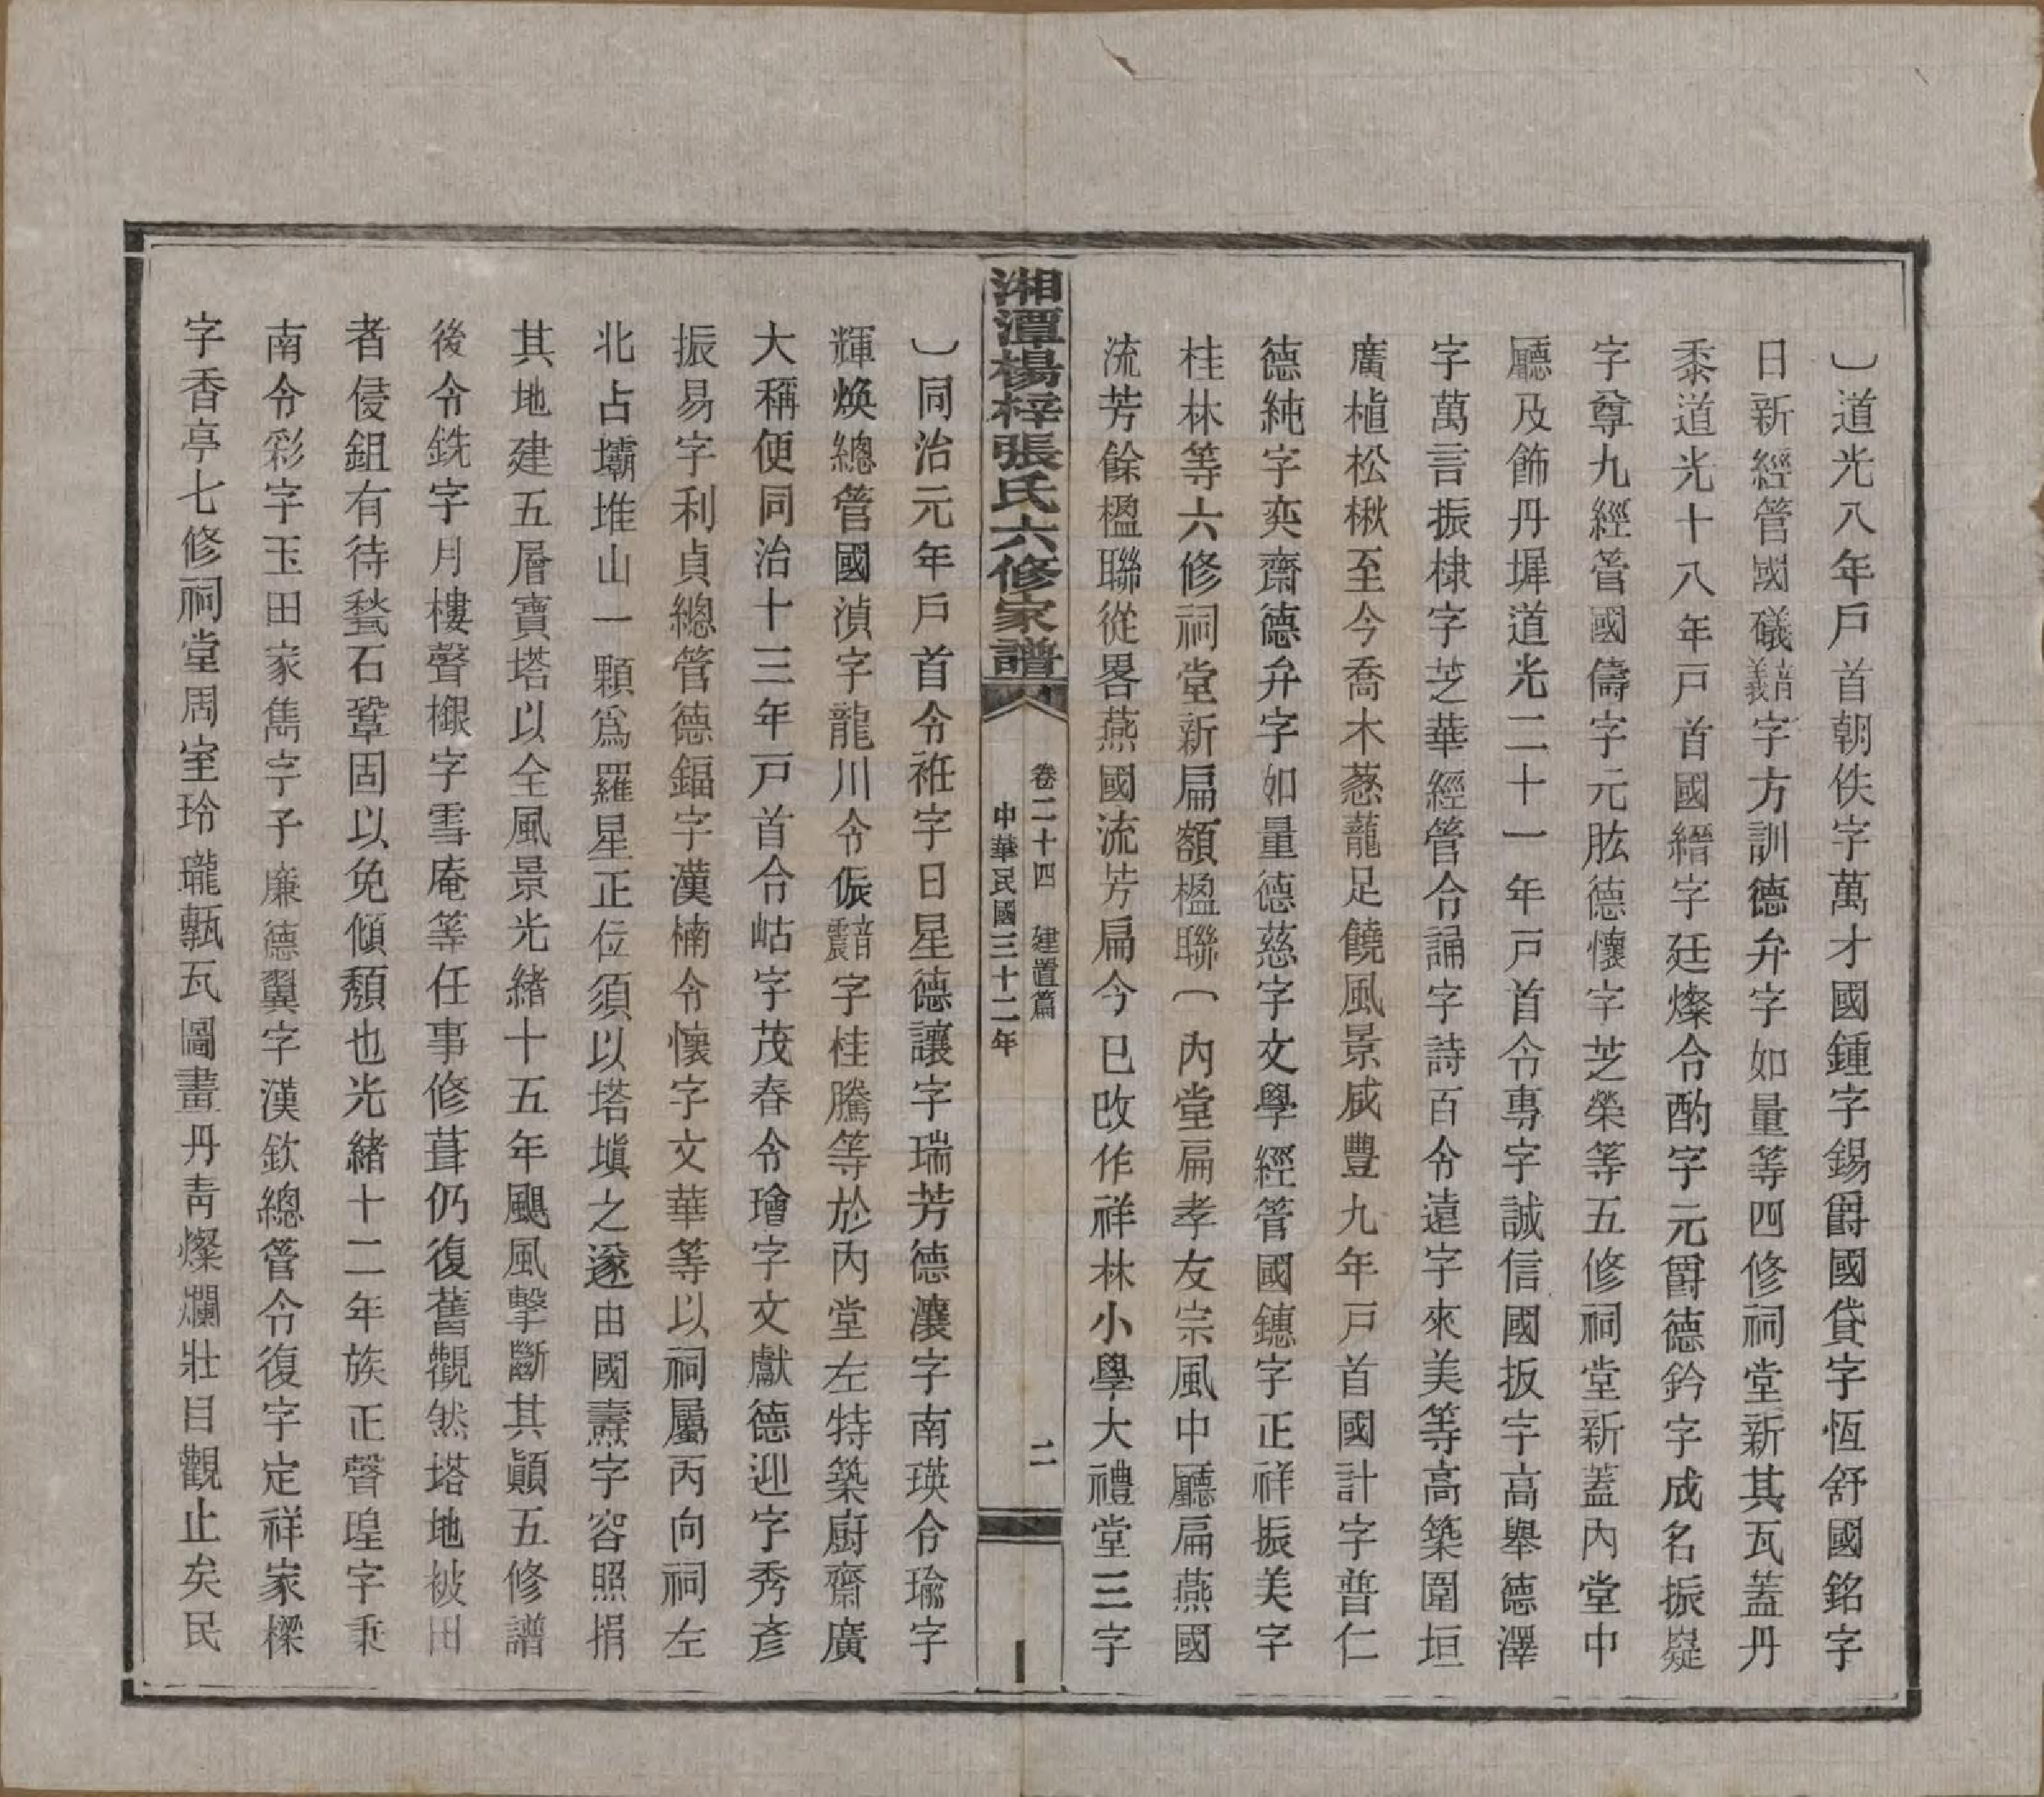 〕道光八年戶首朝佚字萬才國鍾字錫爵國貸字恆舒國銘字
日新經管國礒音義字方訓德弁字如量等四修祠堂新其瓦蓋丹
黍道光十八年戸首國縉字廷燦令酌字元爵德鈐字成名振嶷
字尊九經管國儔字元肱德懷字芝榮等五修祠堂新蓋內堂中
廳及飾丹墀道光二十一年戸首令專字誠信國扳字高舉德澤
字萬言振棣字芝華經管令誦字詩百令遠字來美等高築圍垣
廣植松楸至今喬木蔥蘢足饒風景咸豐九年戸首國計字普仁
德純字奕齋德弁字如量德慈字文學經管國鏸字正祥振美字
桂林等六修祠堂新扁額楹聯〔內堂扁孝友宗風中廳扁燕國
流芳餘楹聯從畧燕國流芳扁今已改作祥林小學大禮堂三字
湘潭楊梓張氏六修家譜
卷二十四 建置篇
中華民國三十二年
二
〕同治元年戶首令袵字日星德讓字瑞芳德瀼字南瑛令瑜字
輝煥總管國湞字龍川令侲音震字桂騰等於內堂左特築廚齋廣
大稱便同治十三年戸首令岵字茂春令璯字文獻德迎字秀彥
振易字利貞總管德鍢字漢楠令懷字文華等以祠屬丙向祠左
北占壩堆山一顆爲羅星正位須以塔塡之遂由國燾字容照捐
其地建五層寶塔以全風景光緒十五年颶風擊斷其顚五修譜
後令銑字月樓聲棍字雪庵等任事修葺仍復舊觀然塔地被田
者侵鉏有待甃石鞏固以免傾頹也光緒十二年族正聲瑝字秉
南令彩字玉田家雋字子廉德翼字漢欽總管令復字定祥家樑
字香亭七修祠堂周室玲瓏甎瓦圖畫丹靑燦爛壯目觀止矣民